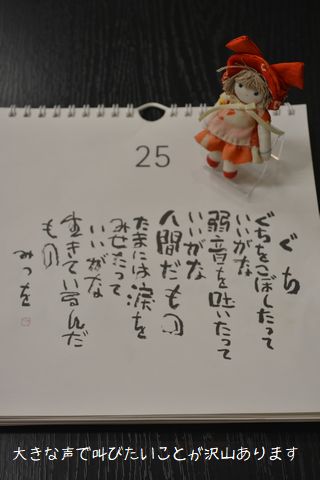 25
ぐち
ぐちをこぼしたって
いいがな
弱音を吐いたって
いいがな
人間だもの
たまには涙を
みせたって
いいがな
生きているんだ
もの
みつを
大きな声で叫びたいことが沢山あります